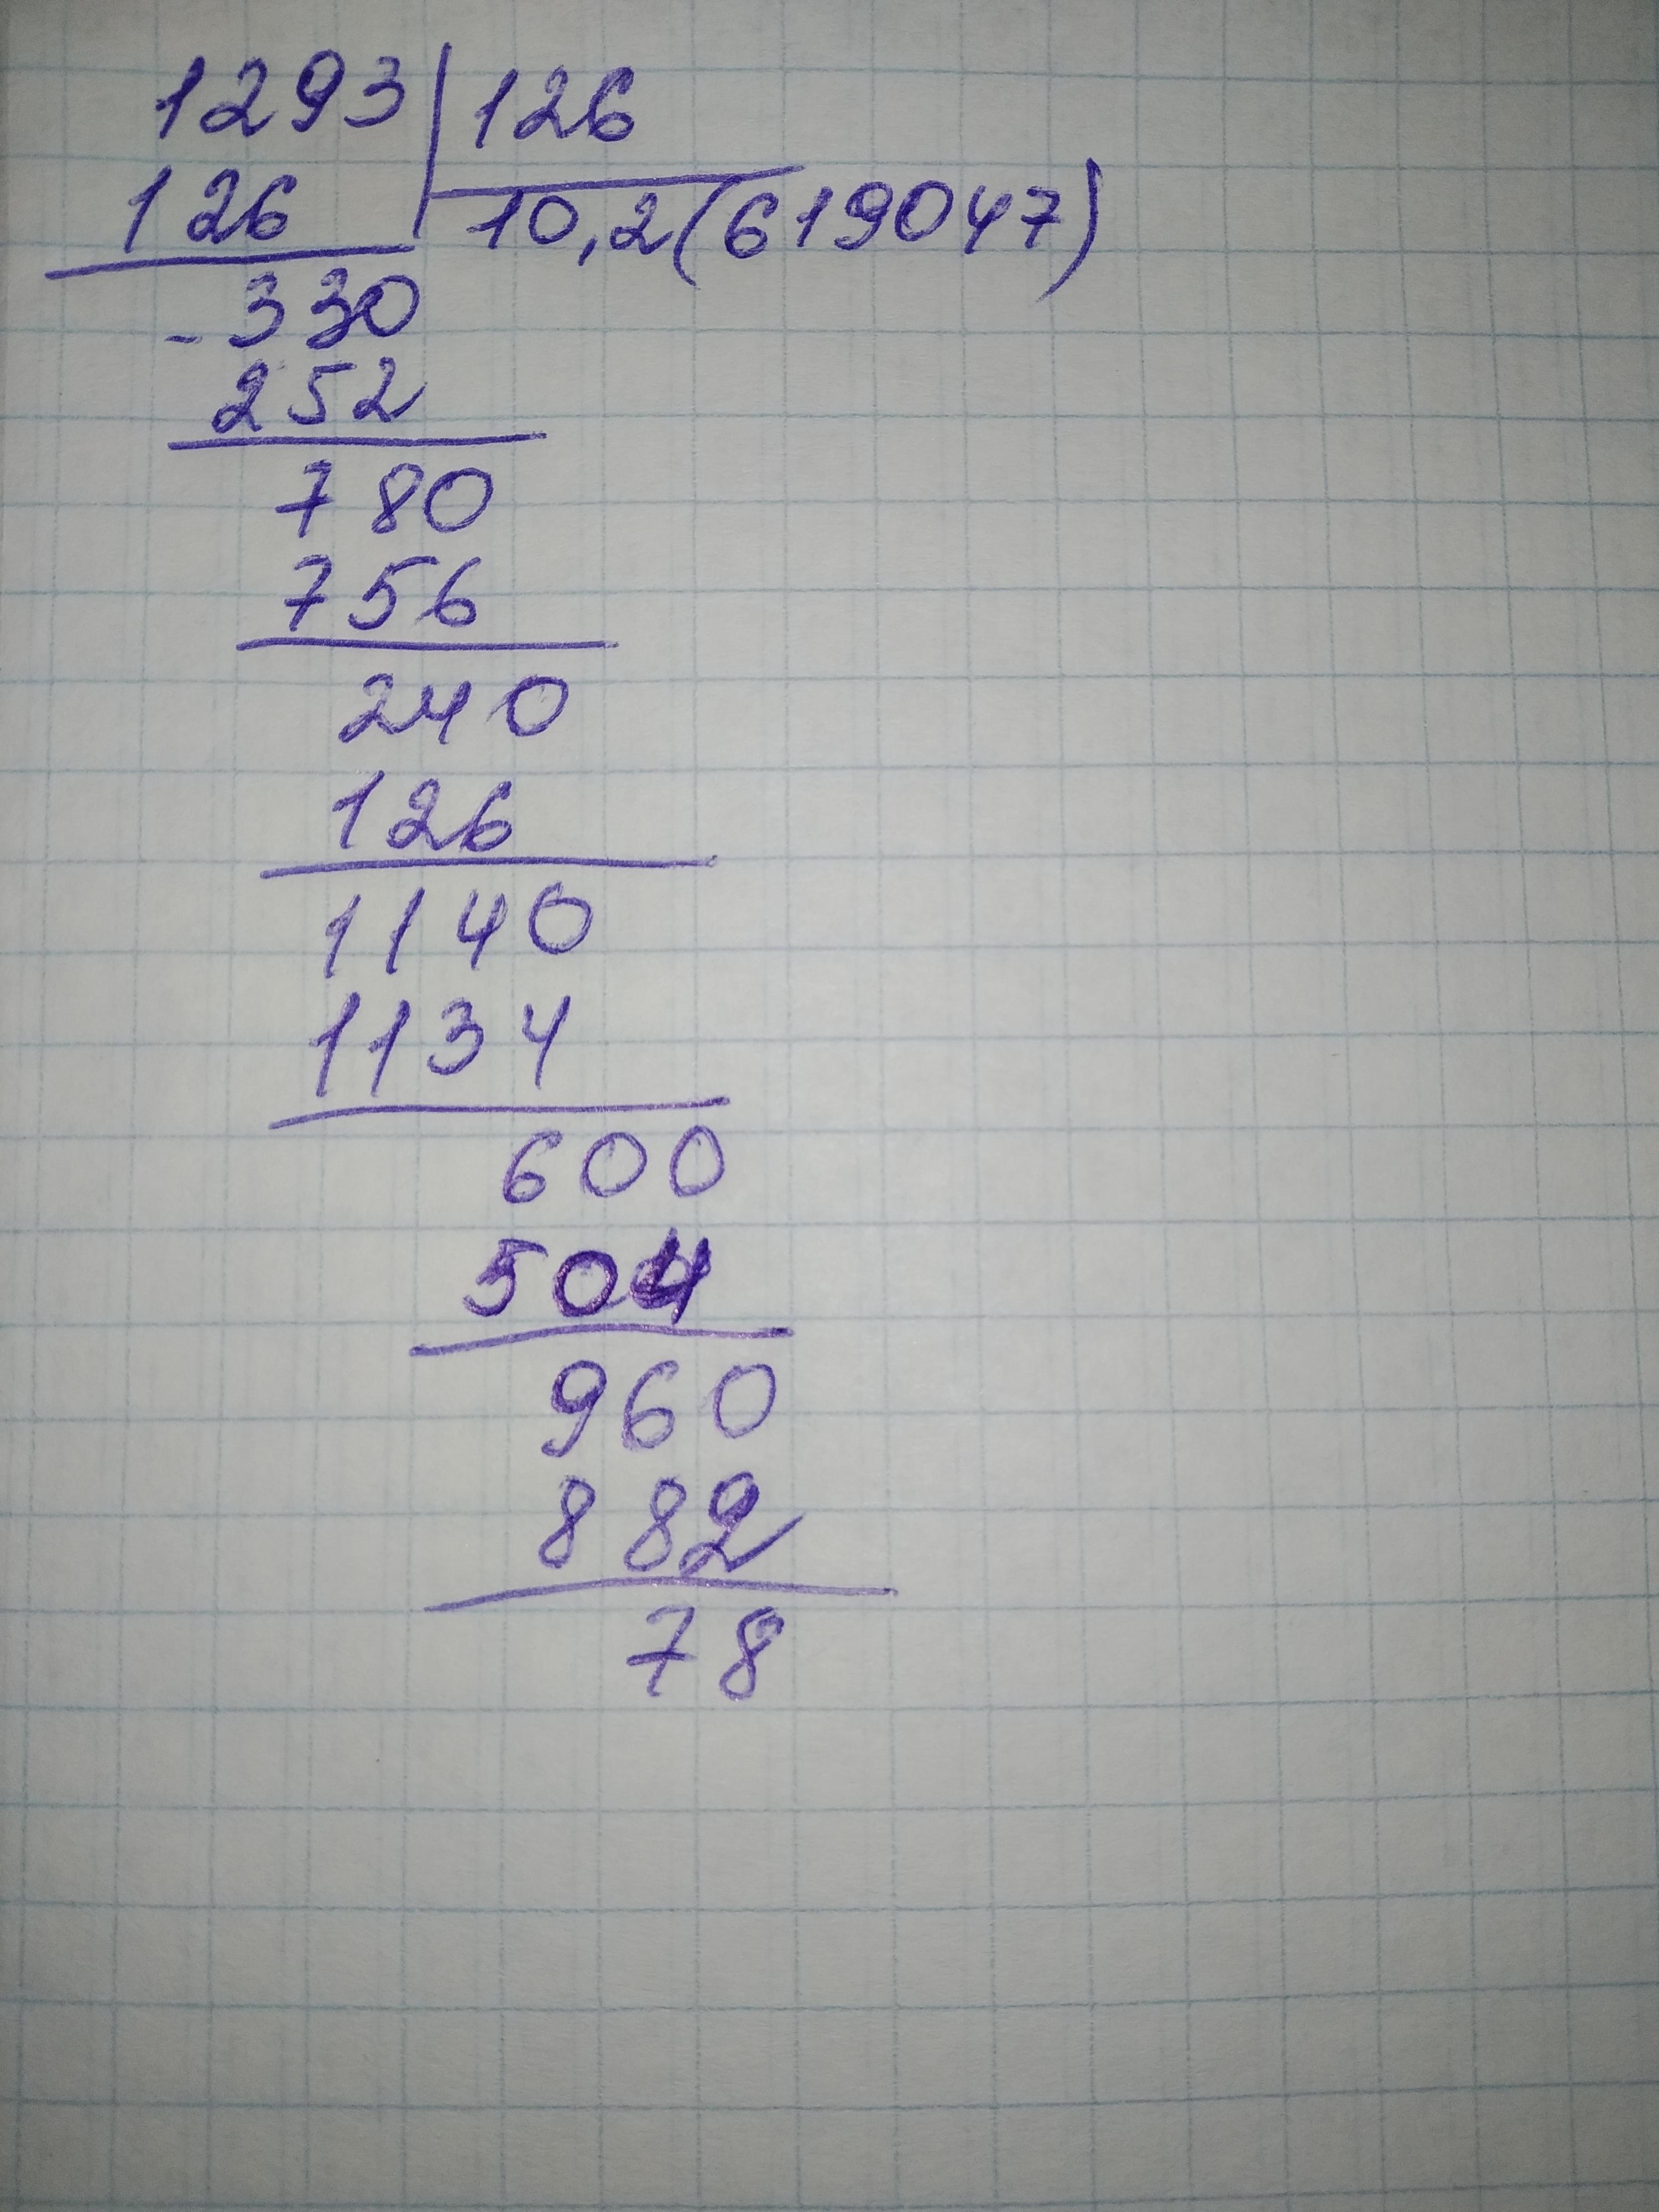 1293 126
126 10,2(619047)
- 330
252
780
756
240
126
1140
1134
600
504
960
882
78